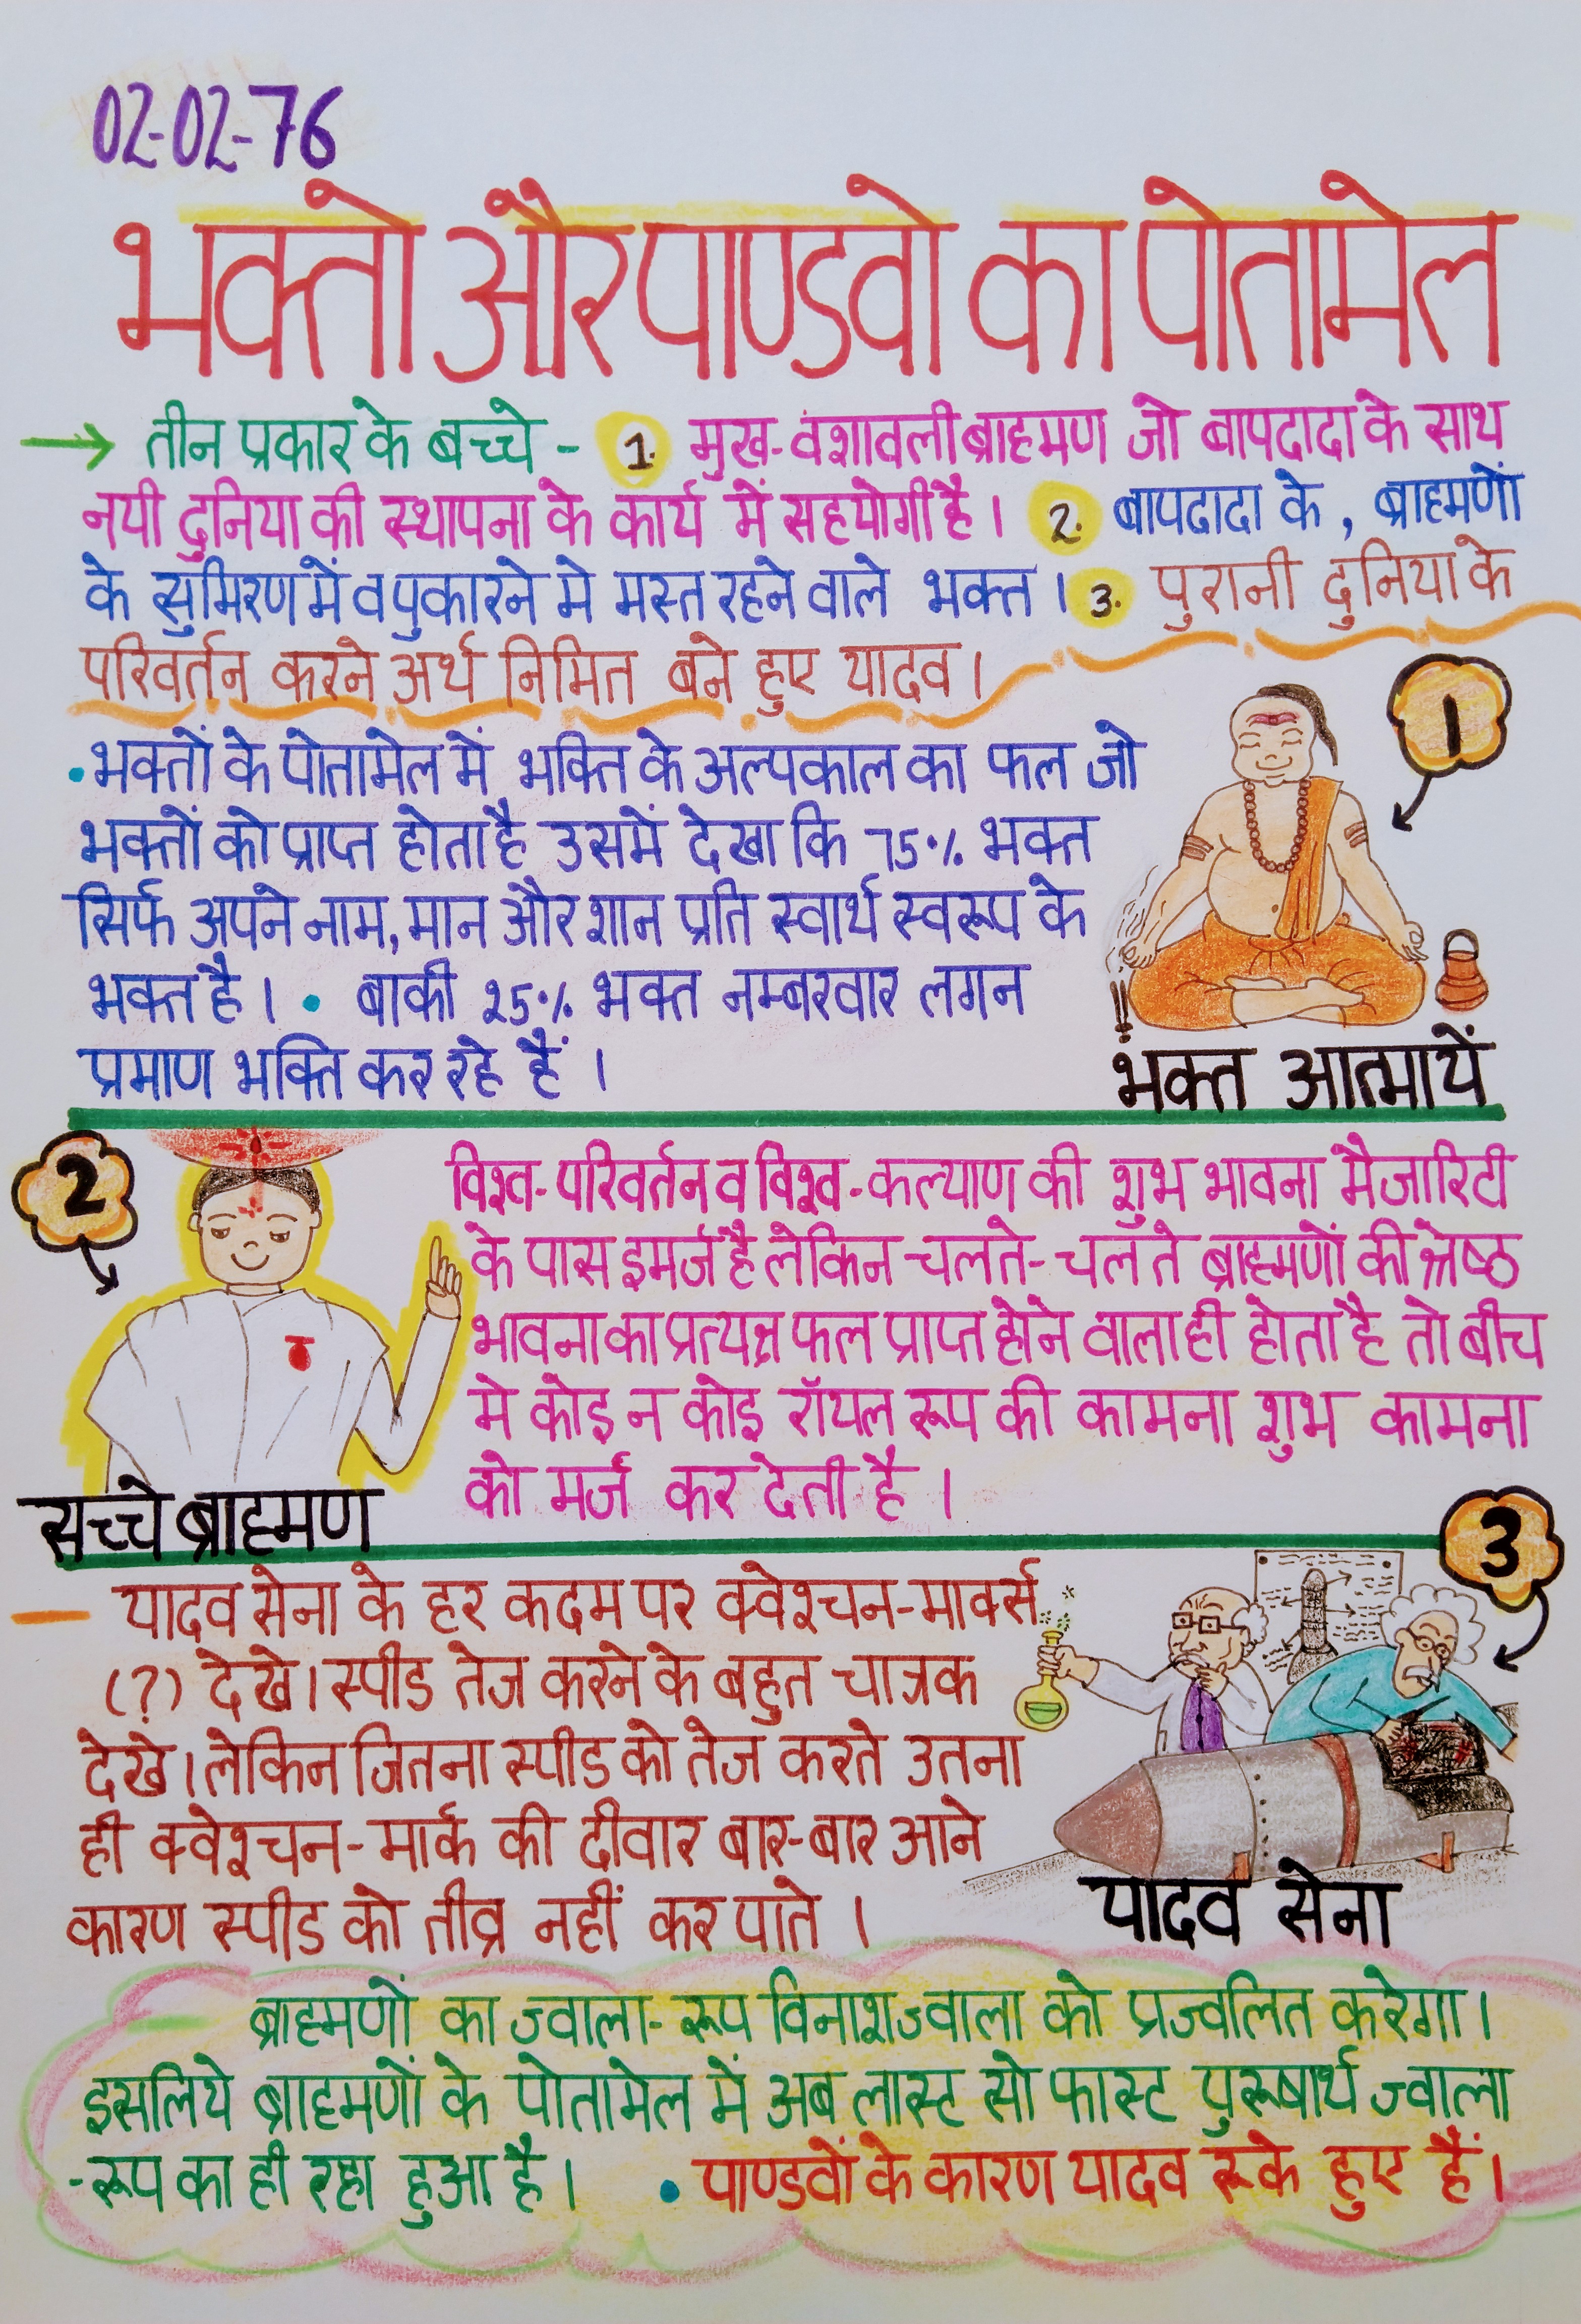 02-02-76
भक्तो और पाण्डवो का पोतामेल
→ तीन प्रकार के बच्चे - 1. मुख-वंशावली ब्राह्मण जो बापदादा के साथ
नयी दुनिया की स्थापना के कार्य में सहयोगी है। 2. बापदादा के, ब्राह्मणों
के सुमिरण में व पुकारने मे मस्त रहने वाले भक्त। 3. पुरानी दुनिया के
परिवर्तन करने अर्थ निमित बने हुए यादव।
1
• भक्तों के पोतामेल में भक्ति के अल्पकाल का फल जो
भक्तों को प्राप्त होता है उसमें देखा कि 75% भक्त
सिर्फ अपने नाम, मान और शान प्रति स्वार्थ स्वरूप के
भक्त है। • बाकी 25% भक्त नम्बरवार लगन
प्रमाण भक्ति कर रहे हैं।
भक्त आत्मायें
2
विश्व-परिवर्तन व विश्व-कल्याण की शुभ भावना मैजारिटी
के पास इमर्ज है लेकिन चलते-चलते ब्राह्मणों की श्रेष्ठ
भावना का प्रत्यक्ष फल प्राप्त होने वाला ही होता है तो बीच
मे कोइ न कोइ रॉयल रूप की कामना शुभ कामना
को मर्ज कर देती है।
सच्चे ब्राह्मण
3
— यादव सेना के हर कदम पर क्वेश्चन-मार्क्स
(?) देखे। स्पीड तेज करने के बहुत चात्रक
देखे। लेकिन जितना स्पीड को तेज करते उतना
ही क्वेश्चन-मार्क की दीवार बार-बार आने
कारण स्पीड को तीव्र नहीं कर पाते।
यादव सेना
ब्राह्मणों का ज्वाला-रूप विनाशज्वाला को प्रज्वलित करेगा।
इसलिये ब्राह्मणों के पोतामेल में अब लास्ट सो फास्ट पुरूषार्थ ज्वाला
-रूप का ही रहा हुआ है। • पाण्डवों के कारण यादव रूके हुए हैं।